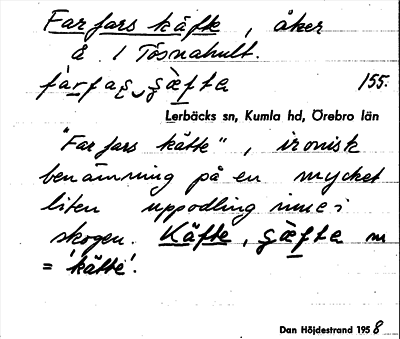 Farfars käfte, åker
å. 1 Tösnahult.
fàrfaʂ‿ʂæ̀fta 155.
Lerbäcks sn, Kumla hd, Örebro län
"Farfars kätte", ironisk
benämning på en mycket
liten uppodling inne i
skogen. Käfte, ʂæ̀fta m
= 'kätte'.
Dan Höjdestrand 1958